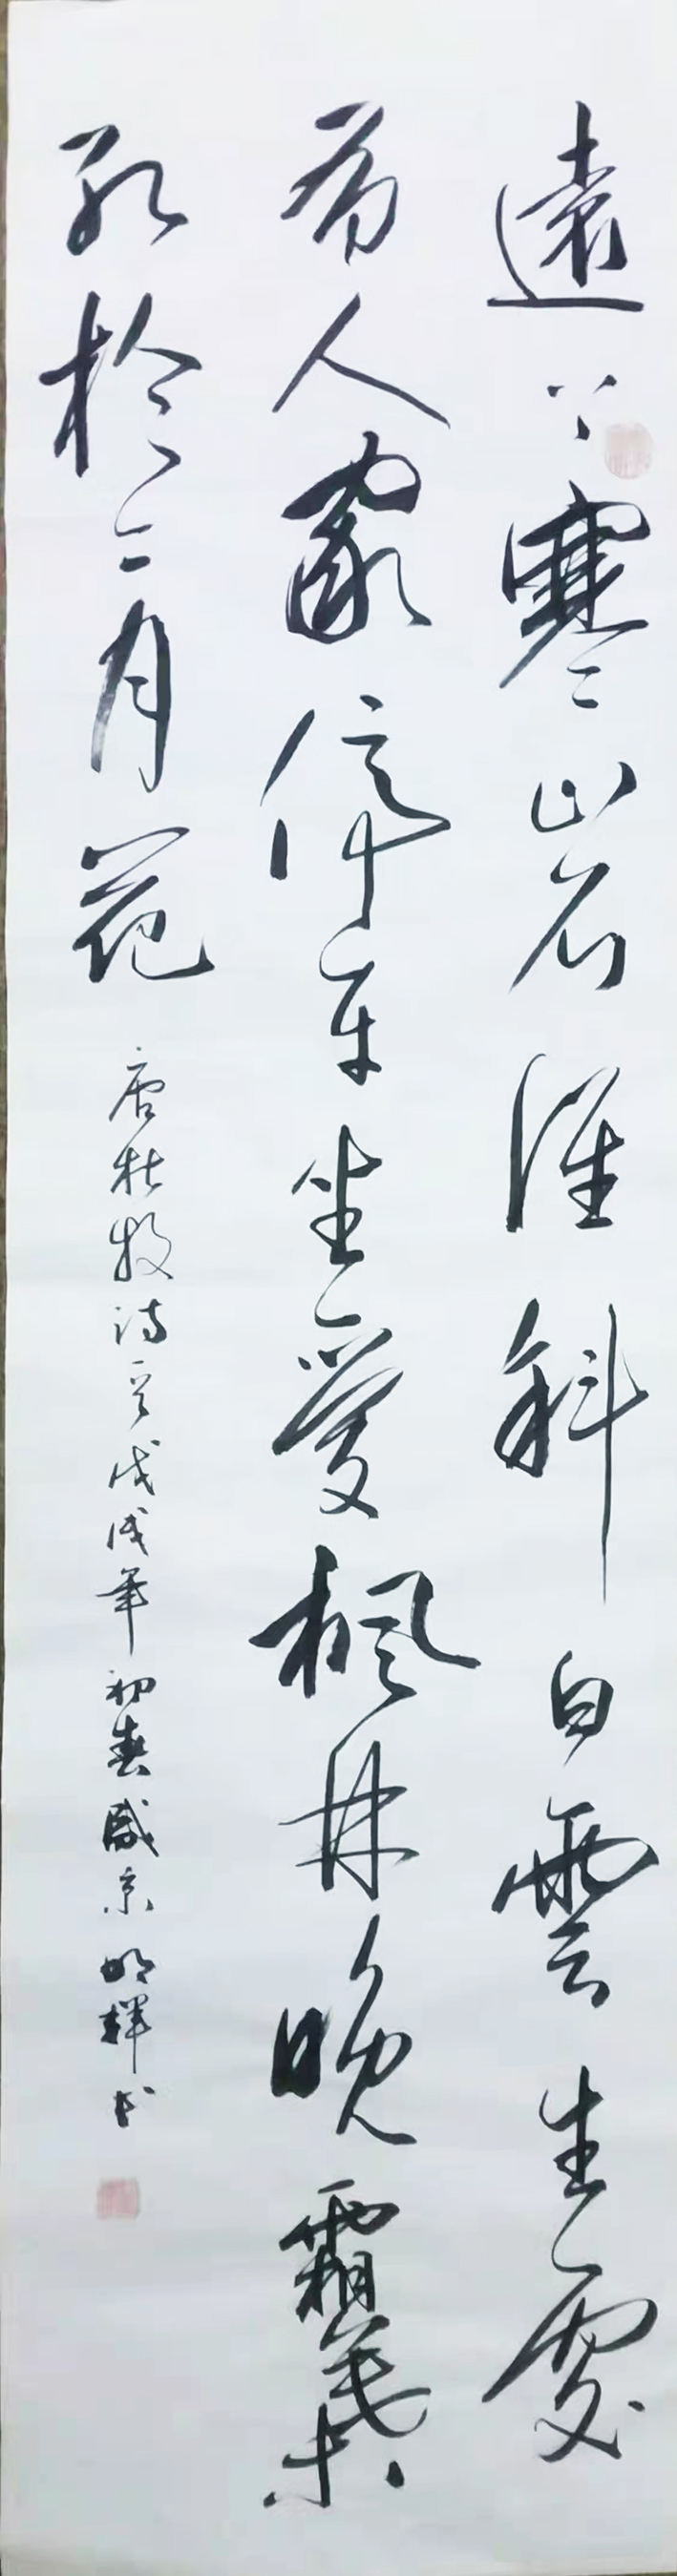 遠上寒山石徑斜白雲生處
有人家停车坐愛楓林晚霜葉
紅於二月花
唐杜牧詩一首戊戌年初春盛京明輝书